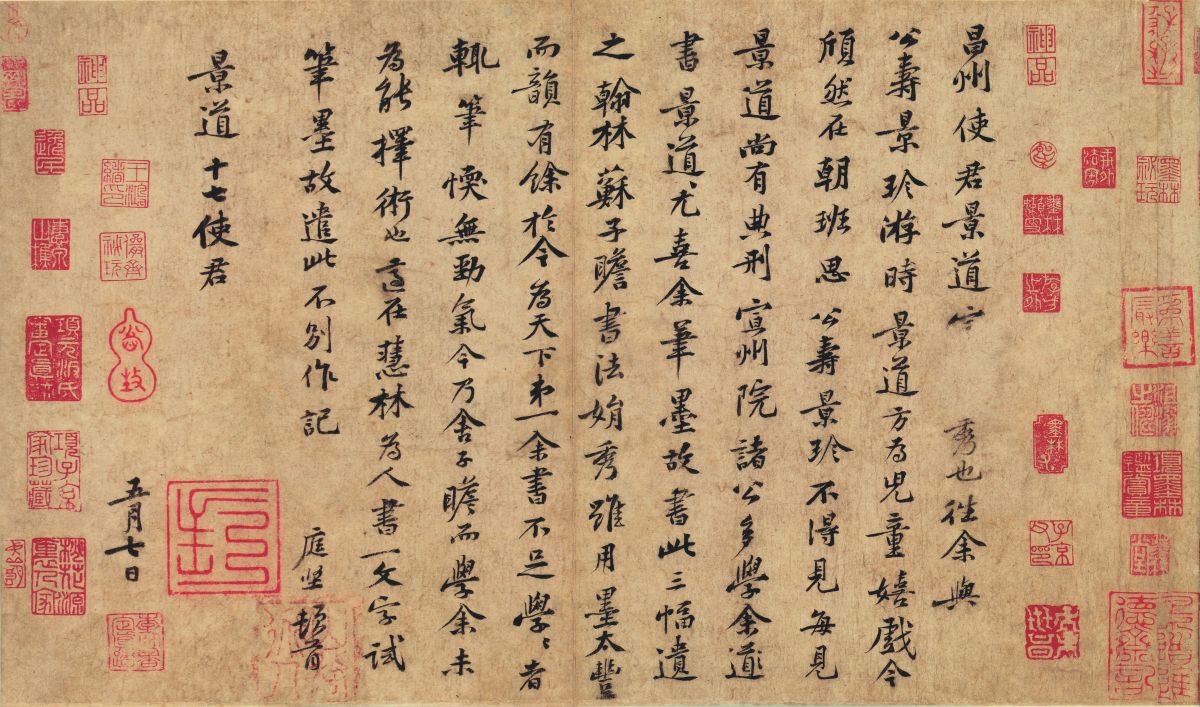 昌州使君景道宗秀也往余與
公壽景珍游時景道方為兒童嬉戲今
頎然在朝班思公壽景珍不得見每見
景道尚有典刑宣州院諸公多學余
書景道尤喜余筆墨故書此三幅遺
之翰林蘇子瞻書法娟秀雖用墨太豐
而韻有餘於今為天下弟一余書不足學〻者
輒筆愞無勁氣今乃舍子瞻而學余未
為能擇術也適在慧林為人書一文字試
筆墨故遣此不別作記
庭堅頓首
景道十七使君
五月七日
神品
墨林祕玩
子京父印
神品
項元汴氏審定真蹟
項子京家珍藏
桃花源裏人家
封